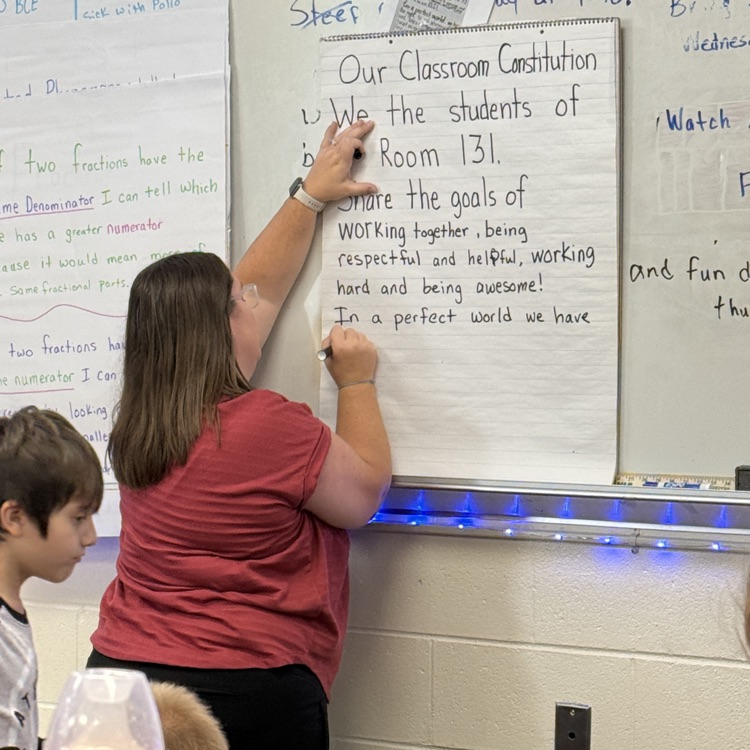 BCE
sick with Pollo
f two fractions have the
me Denominator I can tell which
e has a greater numerator
ause it would mean more of
same fractional parts.
two fractions ha
e numerator I can
looking
Steer
Our Classroom Constitution
We the students of
Room 131.
Share the goals of
working together, being
respectful and helpful, working
hard and being awesome!
In a perfect world we have
Wednes
Watch
F
and fun d
thu